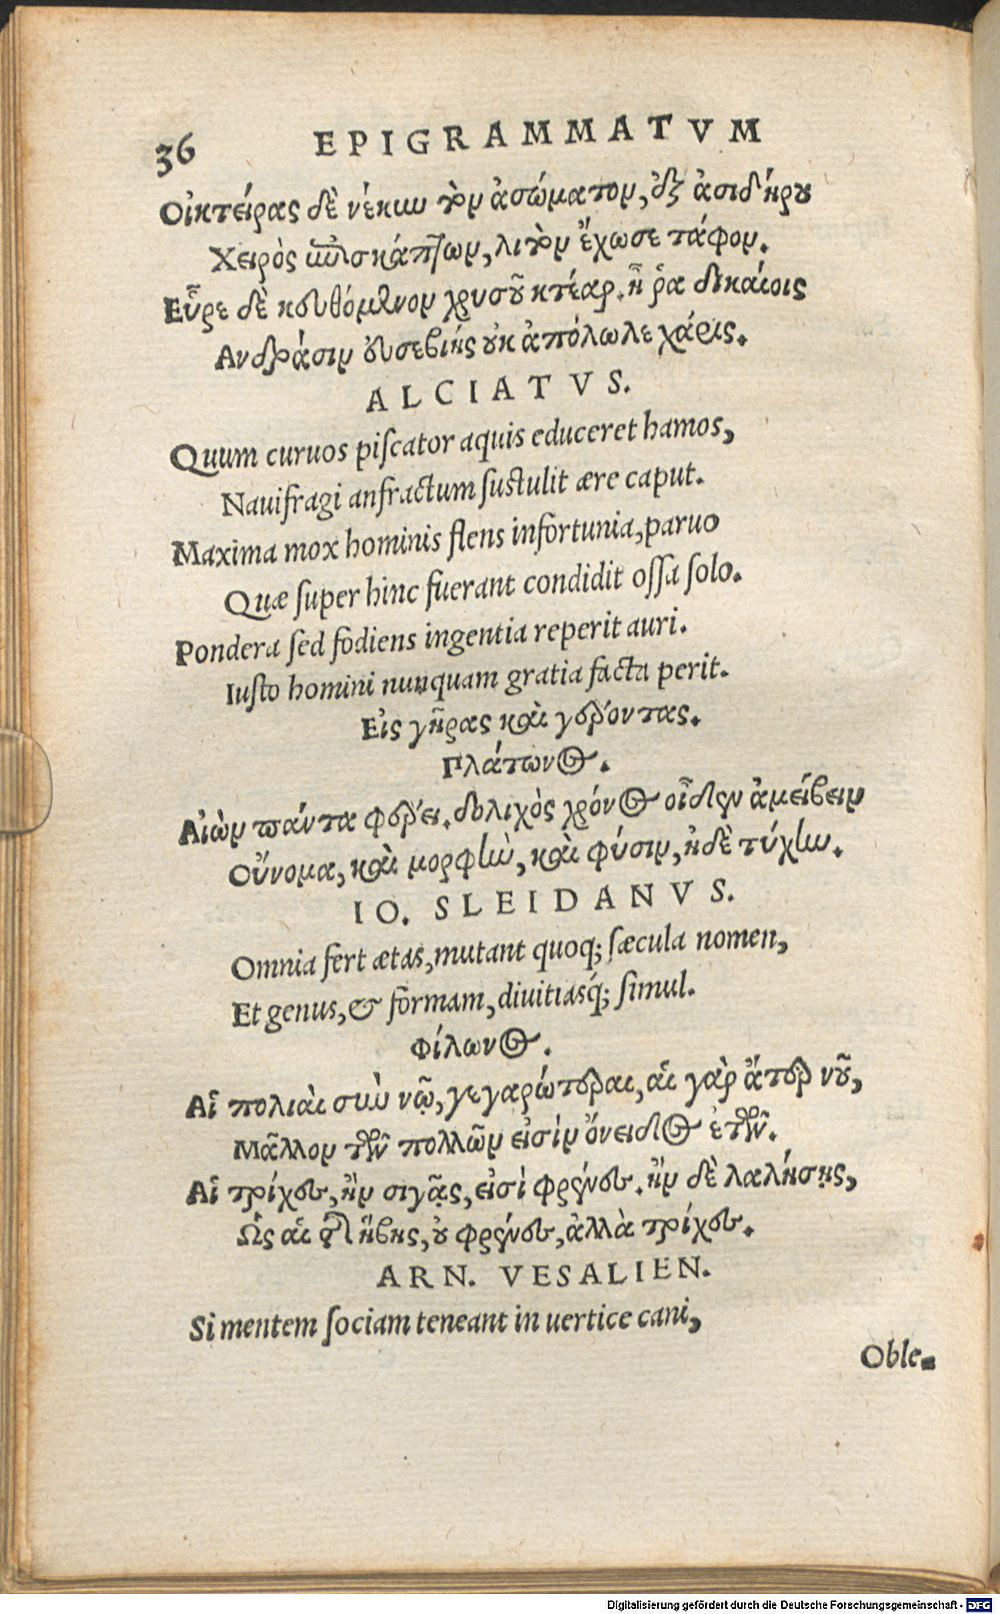 36 EPIGRAMMATVM
Οἰκτείρας δὲ νέκυν τὸν ἀσώματον, ἐξ ἀσιδήρου
Χειρὸς ὑποσκάπτων, λιτὸν ἔχωσε τάφον.
Εὗρε δὲ κευθόμενον χρυσοῦ κτέαρ. ἦ ῥα δικαίοις
Ανδράσιν εὐσεβίης οὐκ ἀπόλωλε χάρις.
ALCIATVS.
Quum curuos piſcator aquis educeret hamos,
Nauifragi anfractum ſustulit ære caput.
Maxima mox hominis flens infortunia, paruo
Quæ ſuper hinc fuerant condidit oſſa ſolo.
Pondera ſed fodiens ingentia reperit auri.
Iuſto homini nunquam gratia facta perit.
Εἰς γῆρας καὶ γέροντας.
Πλάτωνος.
Αἰὼν πάντα φέρει. δολιχὸς χρόνος οἶδεν ἀμείβειν
Οὔνομα, καὶ μορφὴν, καὶ φύσιν, ἠδὲ τύχην.
IO. SLEIDANVS.
Omnia fert ætas, mutant quoq; ſæcula nomen,
Et genus, & formam, diuitiasq́; ſimul.
Φίλωνος.
Αἱ πολιαὶ σὺν νῷ, γεγαρώτεραι, αἱ γὰρ ἄτερ νοῦ,
Μᾶλλον τῶν πολλῶν εἰσὶν ὄνειδος ἐτῶν.
Αἱ τρίχες, ἢν σιγᾷς, εἰσὶ φρένες. ἢν δὲ λαλήσῃς,
Ὡς αἱ τῆς ἥβης, οὐ φρένες, ἀλλὰ τρίχες.
ARN. VESALIEN.
Si mentem ſociam teneant in uertice cani,
Oble-
Digitalisierung gefördert durch die Deutsche Forschungsgemeinschaft - DFG